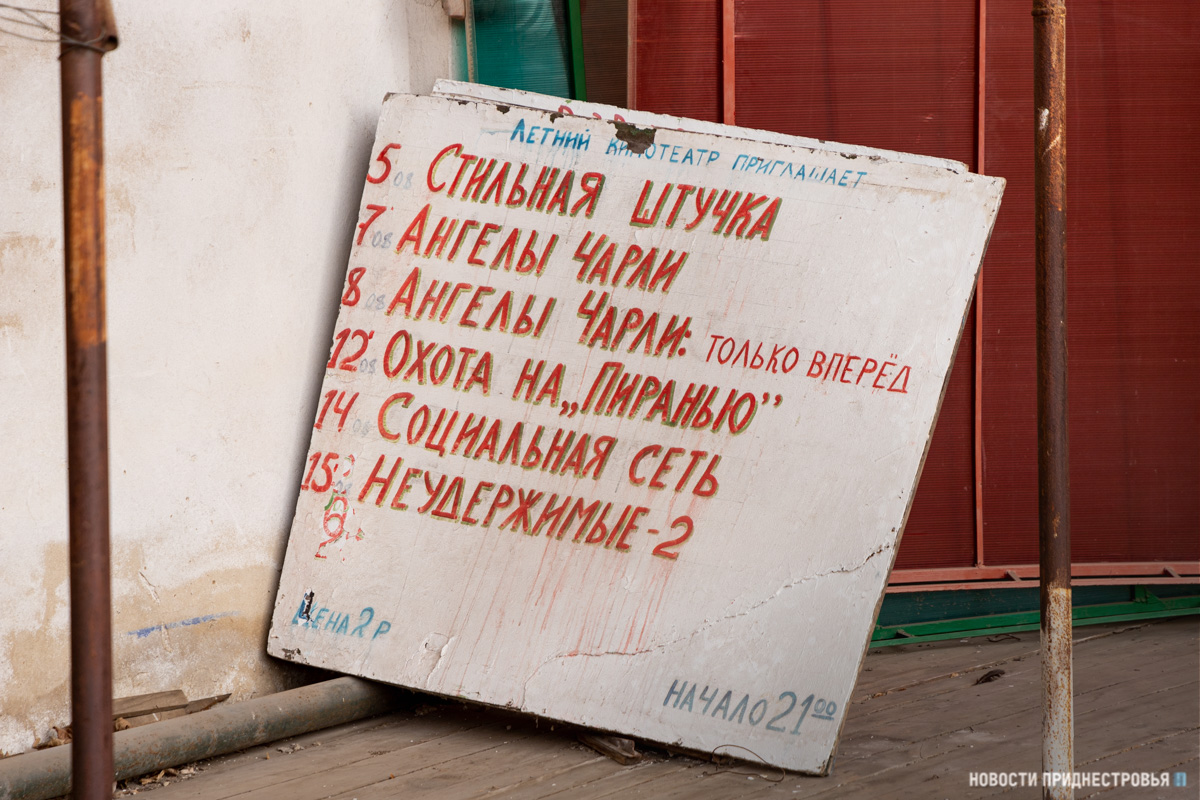 ЛЕТНИЙ КИНОТЕАТР ПРИГЛАШАЕТ
5 08 СТИЛЬНАЯ ШТУЧКА
7 08 АНГЕЛЫ ЧАРЛИ
8 08 АНГЕЛЫ ЧАРЛИ: ТОЛЬКО ВПЕРЁД
12 08 ОХОТА НА „ПИРАНЬЮ”
14 08 СОЦИАЛЬНАЯ СЕТЬ
15 НЕУДЕРЖИМЫЕ-2
ЦЕНА 2 Р
НАЧАЛО 21 00
НОВОСТИ ПРИДНЕСТРОВЬЯ